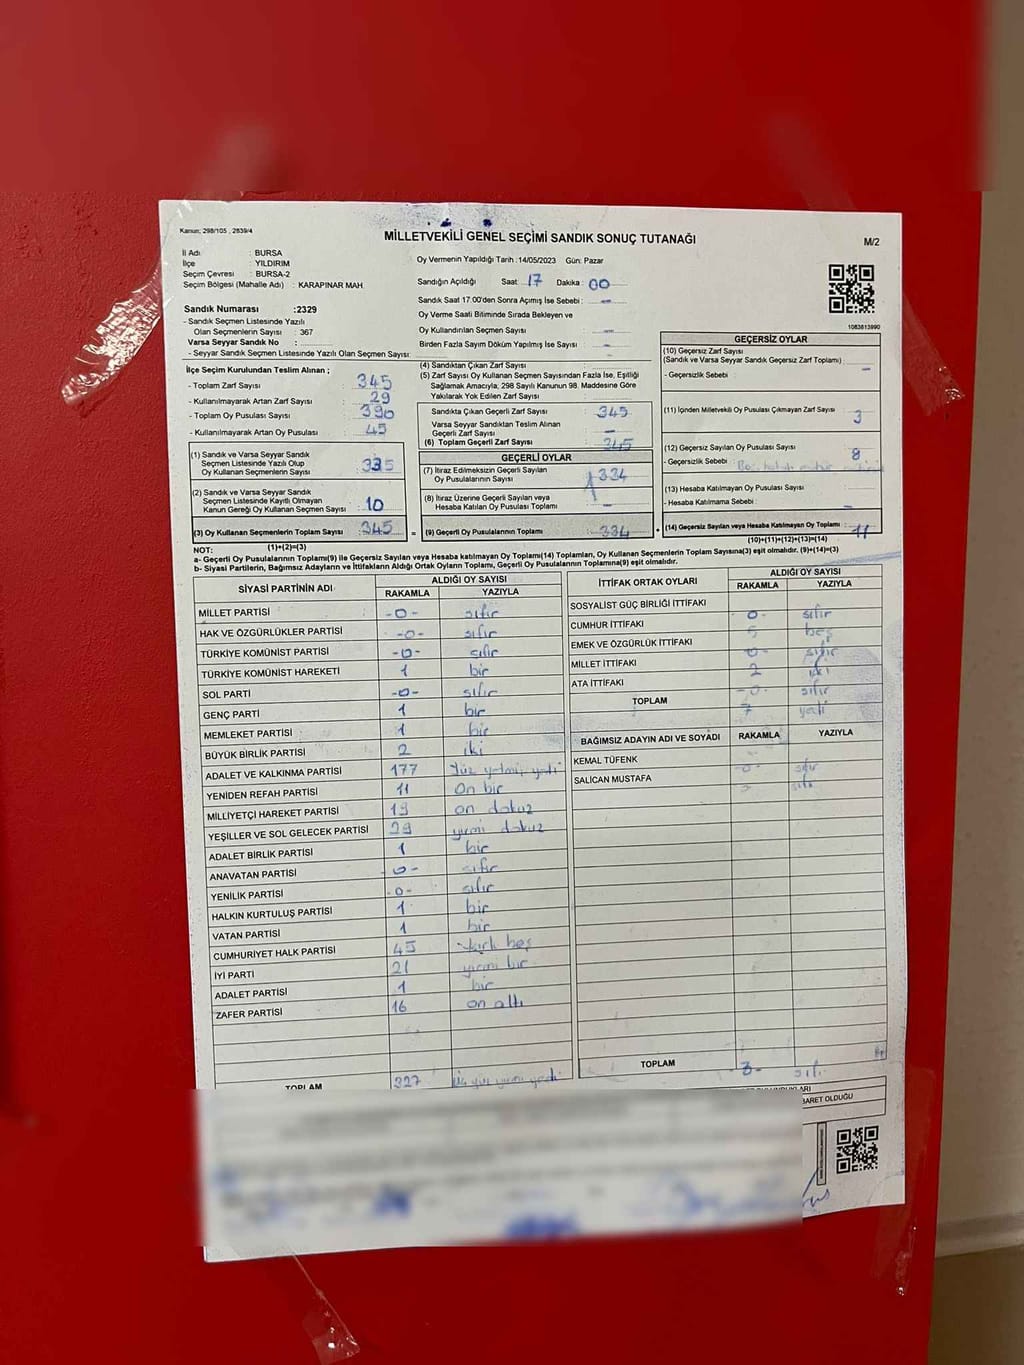 Kanun; 298/105 , 2839/4
MİLLETVEKİLİ GENEL SEÇİMİ SANDIK SONUÇ TUTANAĞI
M/2
İl Adı : BURSA
İlçe : YILDIRIM
Seçim Çevresi : BURSA-2
Seçim Bölgesi (Mahalle Adı) : KARAPINAR MAH.
Sandık Numarası :2329
- Sandık Seçmen Listesinde Yazılı
Olan Seçmenlerin Sayısı : 367
Varsa Seyyar Sandık No :
- Seyyar Sandık Seçmen Listesinde Yazılı Olan Seçmen Sayısı:
Oy Vermenin Yapıldığı Tarih :14/05/2023 Gün: Pazar
Sandığın Açıldığı Saat 17 Dakika: 00
Sandık Saat 17:00'den Sonra Açımış İse Sebebi : -
Oy Verme Saati Bitiminde Sırada Bekleyen ve
Oy Kullandırılan Seçmen Sayısı : -
Birden Fazla Sayım Döküm Yapılmış İse Sayısı : -
1083813990
İlçe Seçim Kurulundan Teslim Alınan ;
- Toplam Zarf Sayısı : 345
- Kullanılmayarak Artan Zarf Sayısı : 29
- Toplam Oy Pusulası Sayısı : 390
- Kullanılmayarak Artan Oy Pusulası : 45
(1) Sandık ve Varsa Seyyar Sandık
Seçmen Listesinde Yazılı Olup
Oy Kullanan Seçmenlerin Sayısı : 335
(2) Sandık ve Varsa Seyyar Sandık
Seçmen Listesinde Kayıtlı Olmayan
Kanun Gereği Oy Kullanan Seçmen Sayısı : 10
(3) Oy Kullanan Seçmenlerin Toplam Sayısı : 345
(4) Sandıktan Çıkan Zarf Sayısı :
(5) Zarf Sayısı Oy Kullanan Seçmen Sayısından Fazla İse, Eşitliği
Sağlamak Amacıyla; 298 Sayılı Kanunun 98. Maddesine Göre
Yakılarak Yok Edilen Zarf Sayısı :
Sandıkta Çıkan Geçerli Zarf Sayısı : 345
Varsa Seyyar Sandıktan Teslim Alınan
Geçerli Zarf Sayısı : -
(6) Toplam Geçerli Zarf Sayısı : 345
GEÇERLİ OYLAR
(7) İtiraz Edilmeksizin Geçerli Sayılan
Oy Pusulasının Sayısı : 334
(8) İtiraz Üzerine Geçerli Sayılan veya
Hesaba Katılan Oy Pusulası Toplamı :
= (9) Geçerli Oy Pusulalarının Toplamı : 334
GEÇERSİZ OYLAR
(10) Geçersiz Zarf Sayısı
(Sandık ve Varsa Seyyar Sandık Geçersiz Zarf Toplamı) : -
- Geçersizlik Sebebi :
(11) İçinden Milletvekili Oy Pusulası Çıkmayan Zarf Sayısı : 3
(12) Geçersiz Sayılan Oy Pusulası Sayısı : 8
- Geçersizlik Sebebi :
(13) Hesaba Katılmayan Oy Pusulası Sayısı :
- Hesaba Katılmama Sebebi : -
+ (14) Geçersiz Sayılan veya Hesaba Katılmayan Oy Toplamı : 11
NOT: (1)+(2)=(3) (10)+(11)+(12)+(13)=(14)
a- Geçerli Oy Pusulalarının Toplamı(9) ile Geçersiz Sayılan veya Hesaba katılmayan Oy Toplamı(14) Toplamları, Oy Kullanan Seçmenlerin Toplam Sayısına(3) eşit olmalıdır. (9)+(14)=(3)
b- Siyasi Partilerin, Bağımsız Adayların ve İttifakların Aldığı Ortak Oyların Toplamı, Geçerli Oy Pusulalarının Toplamına(9) eşit olmalıdır.
SİYASİ PARTİNİN ADI ALDIĞI OY SAYISI
RAKAMLA YAZIYLA
MİLLET PARTİSİ -0- sıfır
HAK VE ÖZGÜRLÜKLER PARTİSİ -0- sıfır
TÜRKİYE KOMÜNİST PARTİSİ -0- sıfır
TÜRKİYE KOMÜNİST HAREKETİ 1 bir
SOL PARTİ -0- sıfır
GENÇ PARTİ 1 bir
MEMLEKET PARTİSİ 1 bir
BÜYÜK BİRLİK PARTİSİ 2 iki
ADALET VE KALKINMA PARTİSİ 177 Yüz yetmiş yedi
YENİDEN REFAH PARTİSİ 11 On bir
MİLLİYETÇİ HAREKET PARTİSİ 19 on dokuz
YEŞİLLER VE SOL GELECEK PARTİSİ 29 yirmi dokuz
ADALET BİRLİK PARTİSİ 1 bir
ANAVATAN PARTİSİ -0- sıfır
YENİLİK PARTİSİ -0- sıfır
HALKIN KURTULUŞ PARTİSİ 1 bir
VATAN PARTİSİ 1 bir
CUMHURİYET HALK PARTİSİ 45 kırk beş
İYİ PARTİ 21 yirmi bir
ADALET PARTİSİ 1 bir
ZAFER PARTİSİ 16 on altı
TOPLAM 327 üç yüz yirmi yedi
İTTİFAK ORTAK OYLARI ALDIĞI OY SAYISI
RAKAMLA YAZIYLA
SOSYALİST GÜÇ BİRLİĞİ İTTİFAKI 0- sıfır
CUMHUR İTTİFAKI 5 beş
EMEK VE ÖZGÜRLÜK İTTİFAKI -0- sıfır
MİLLET İTTİFAKI 2 iki
ATA İTTİFAKI -0- sıfır
TOPLAM 7 yedi
BAĞIMSIZ ADAYIN ADI VE SOYADI RAKAMLA YAZIYLA
KEMAL TÜFENK -0- sıfır
SALİCAN MUSTAFA sıfır
TOPLAM sıfır
BARET OLDUĞU